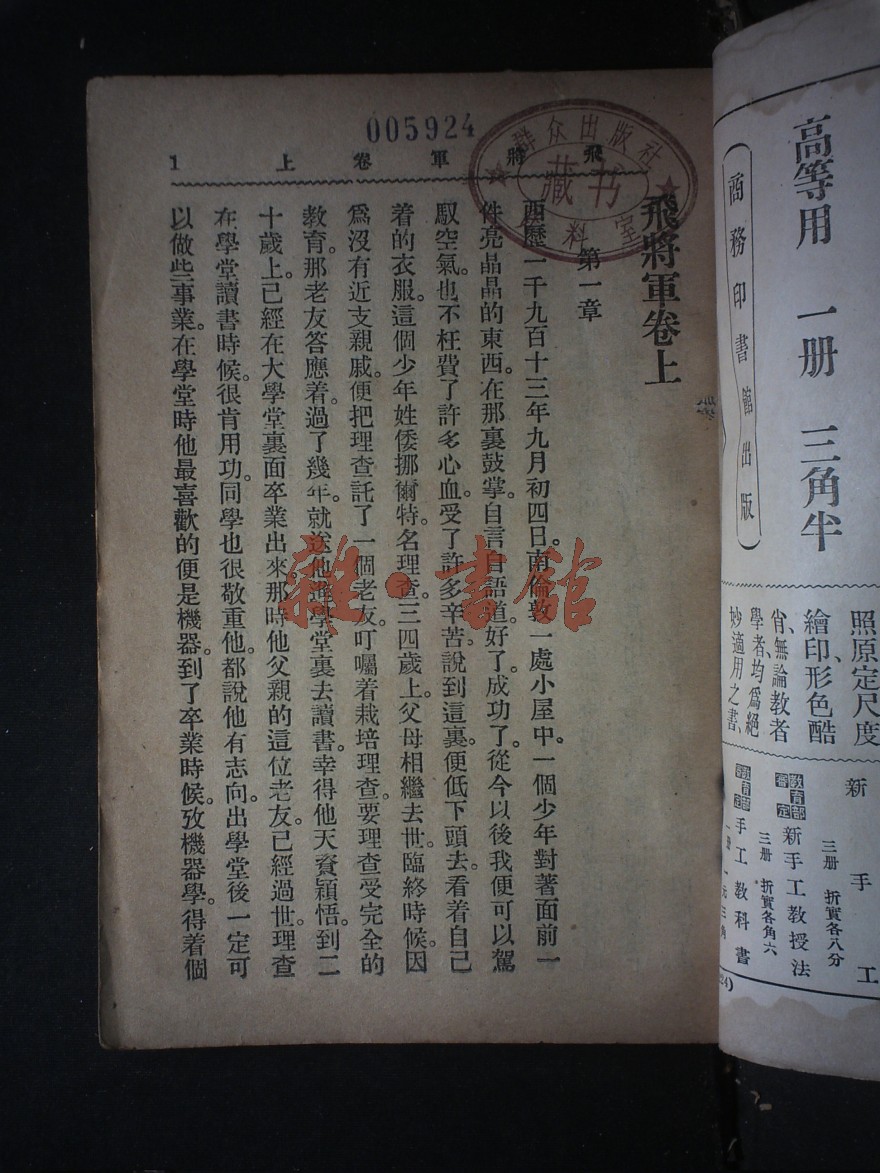 高等用 一册 三角半
商務印書館出版
照原定尺度
繪印形色酷
肖、無論教者
學者、均爲絕
妙適用之書、
新手工
三册 折實各八分
教育部審定
新手工教授法
三册 折實各角六
手工教科書
005924
群众出版社
藏书
資料室
飛將軍卷上 1
飛將軍卷上
第一章
西歷一千九百十三年九月初四日。南倫敦一處小屋中。一個少年對著面前一
件亮晶晶的東西。在那裏鼓掌。自言自語道。好了。成功了。從今以後我便可以駕
馭空氣。也不枉費了許多心血。受了許多辛苦。說到這裏。便低下頭去。看着自己
着的衣服。這個少年姓倭挪爾特。名理查。三四歲上。父母相繼去世。臨終時候。因
爲沒有近支親戚。便把理查託了一個老友。叮囑着栽培理查。要理查受完全的
教育。那老友答應着。過了幾年。就送他進學堂裏去讀書。幸得他天資穎悟。到二
十歲上。已經在大學堂裏面卒業出來。那時他父親的這位老友。已經過世。理查
在學堂讀書時候。很肯用功。同學也很敬重他。都說他有志向。出學堂後一定可
以做些事業。在學堂時他最喜歡的便是機器。到了卒業時候。攷機器學。得着個
雜·書館